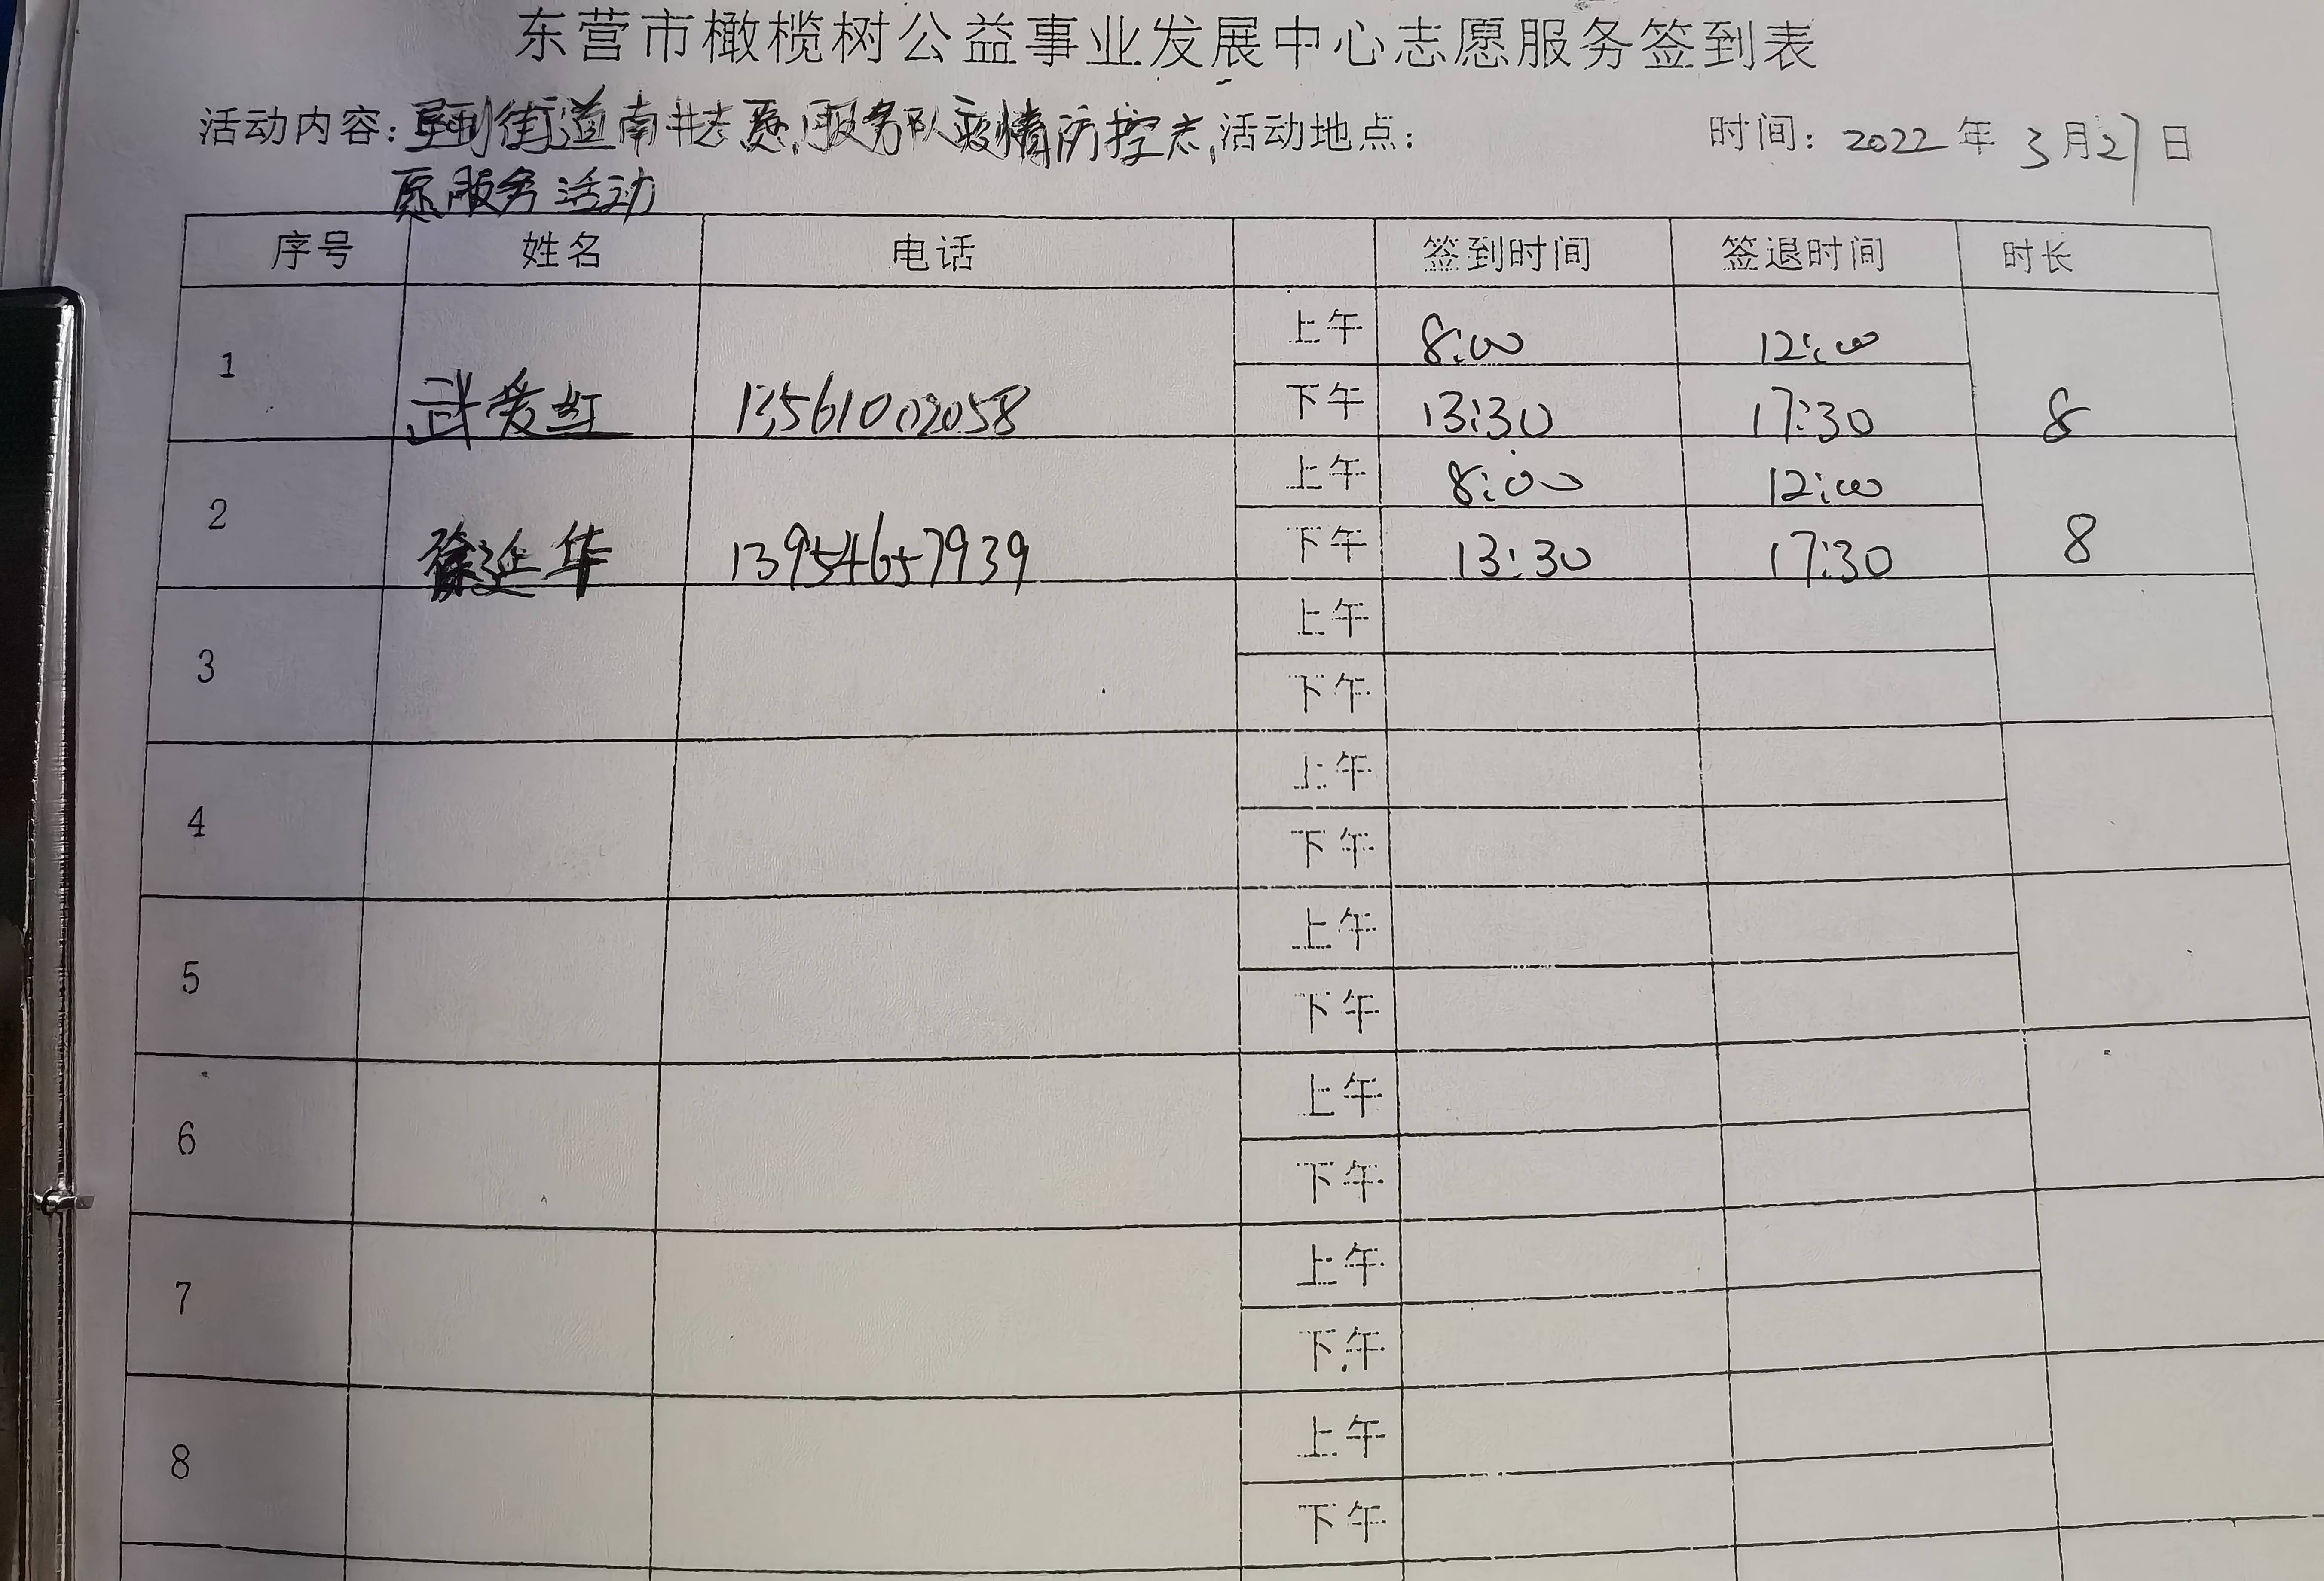 东营市橄榄树公益事业发展中心志愿服务签到表
活动内容: 街道南井志愿服务队疫情防控志 活动地点: 时间: 2022年3月27日
愿服务活动
序号 姓名 电话 签到时间 签退时间 时长
上午 8:00 12:00
1 武爱红 13561002058 下午 13:30 17:30 8
上午 8:00 12:00
2 徐延华 13954657939 下午 13:30 17:30 8
上午
3
下午
上午
4
下午
上午
5
下午
上午
6
下午
上午
7
下午
上午
8
下午